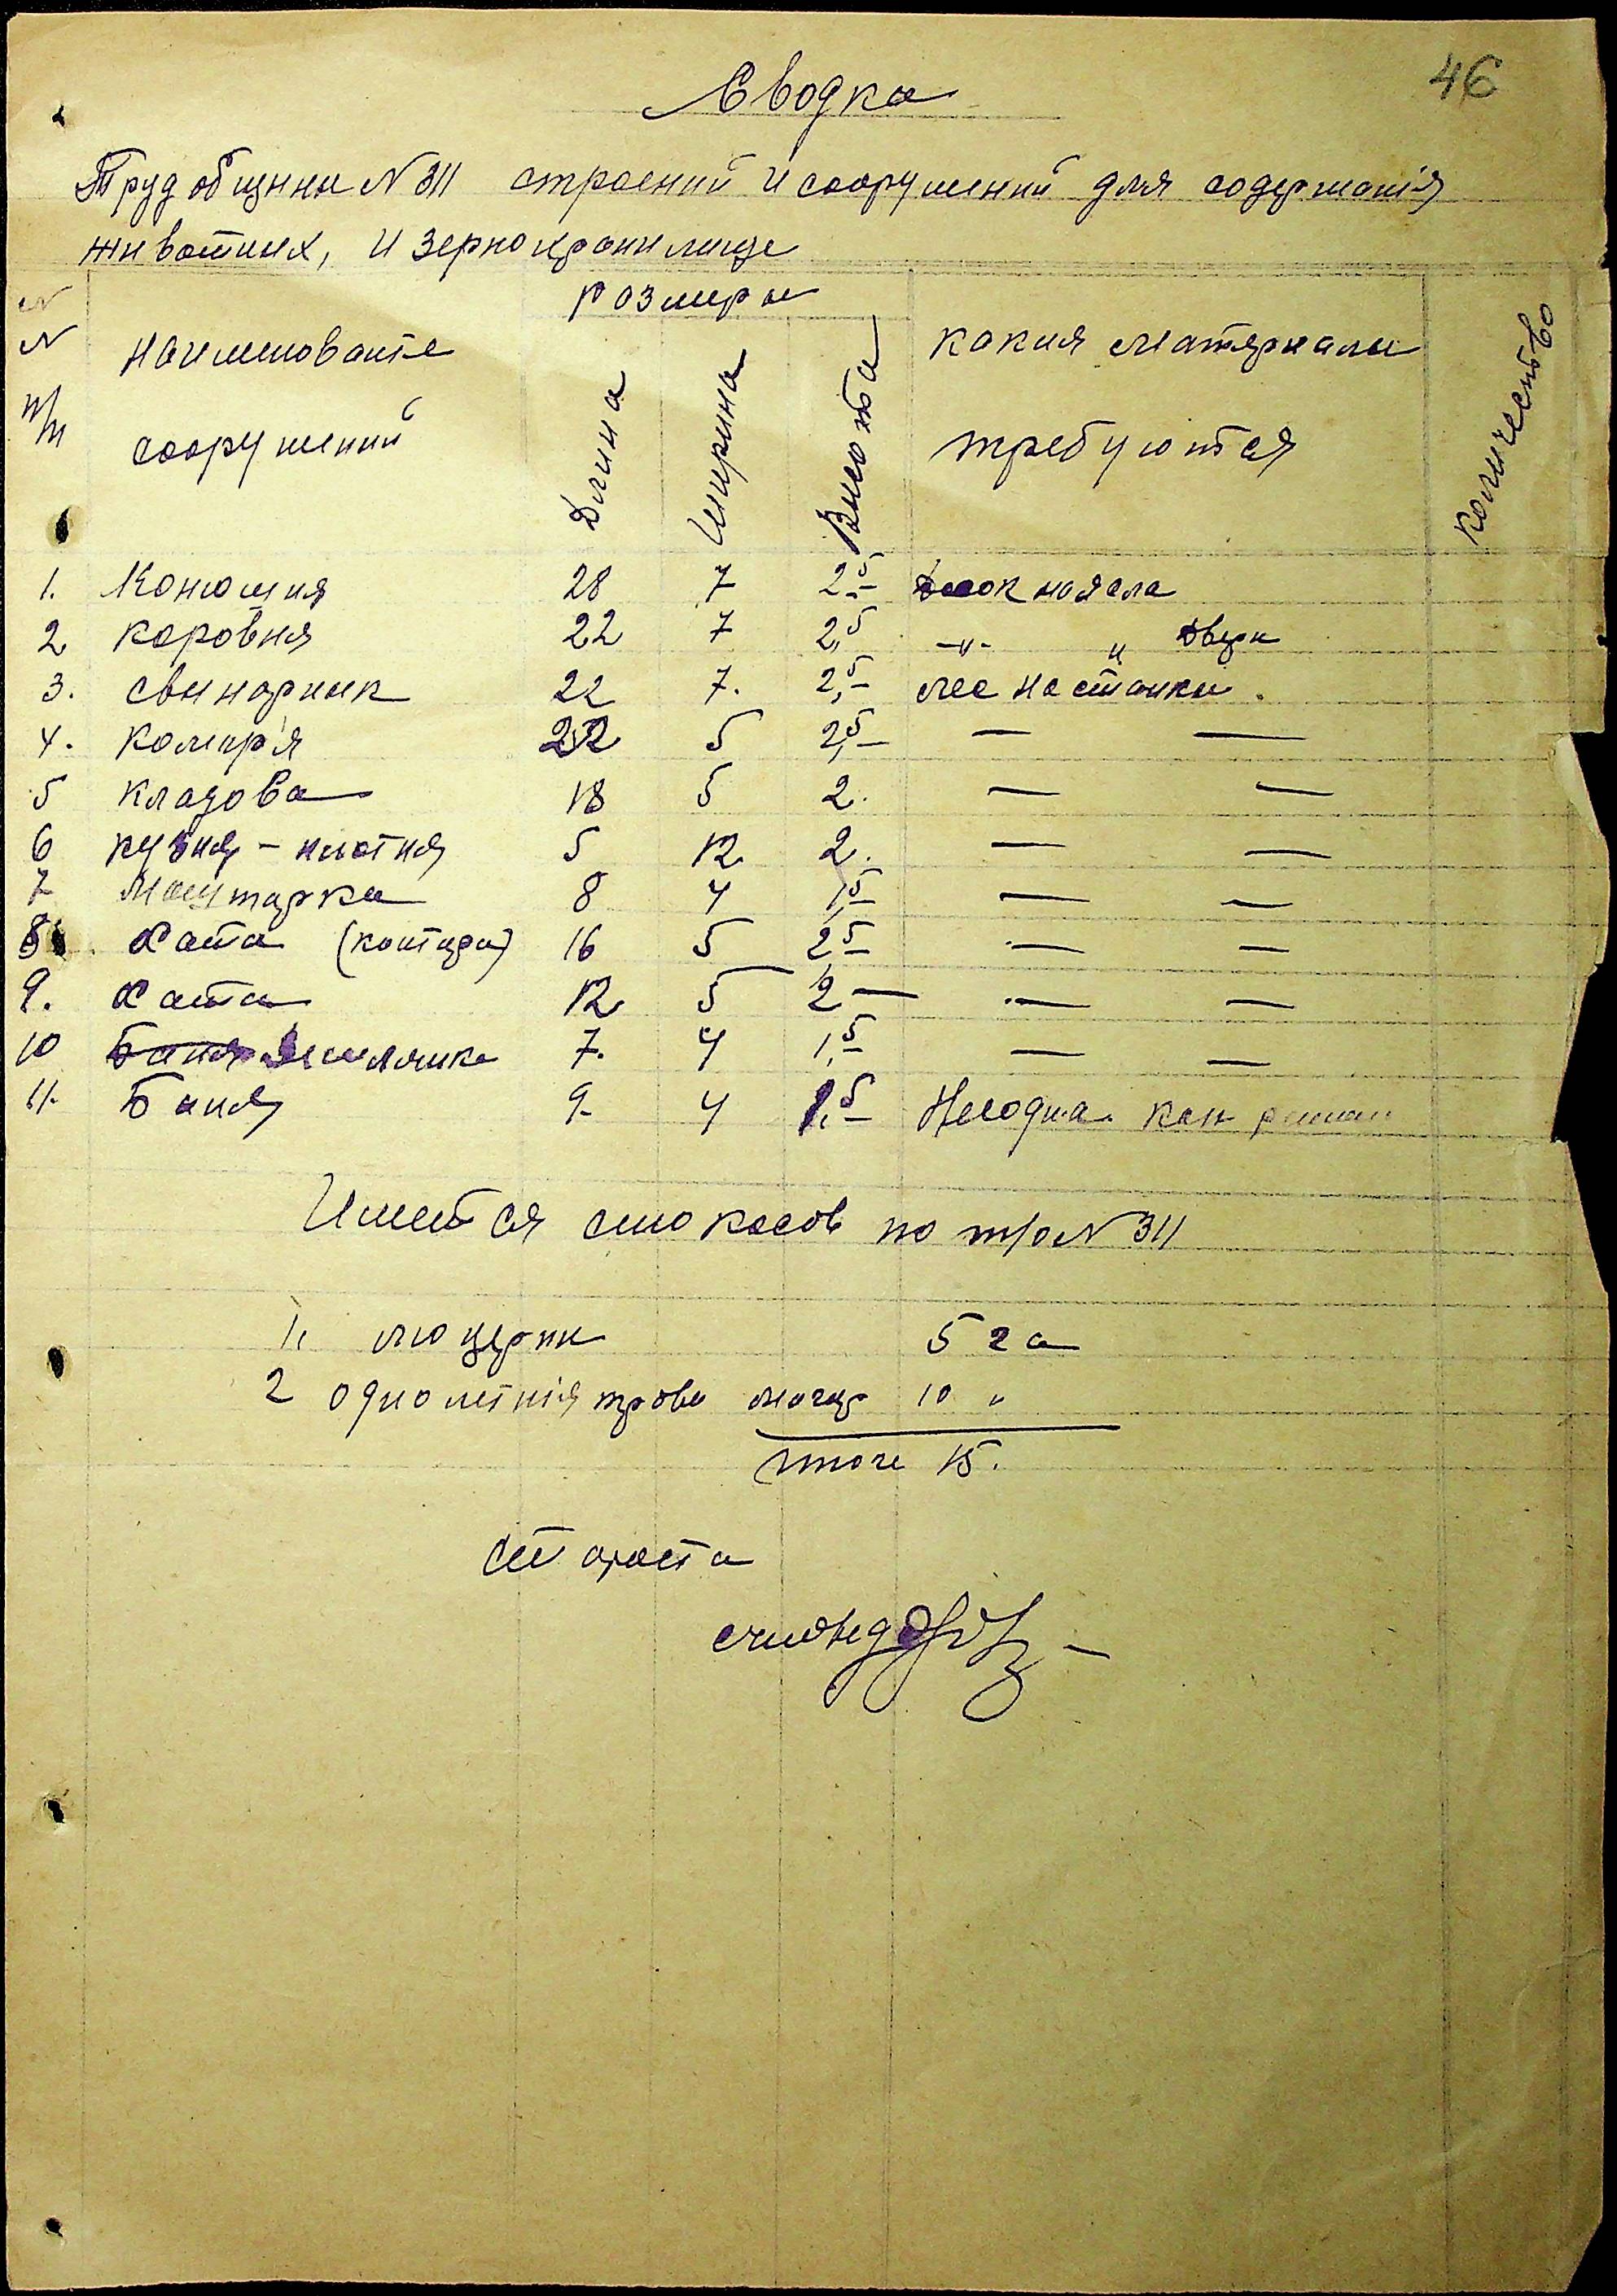 46
Сводка
Трудобщины N 311 строений и сооружений для содержанія
животных, и зернохранилище
N N п/п
наименование сооружений
размеры
Длина
Ширина
Высота
какия материалы требуются
количество
1. Конюшня 28 7 2,5 Досок на ясла
2 коровня 22 7 2,5 -"- " Двери
3. свинарник 22 7. 2,5 лес на станки.
4. комир'я 22 5 2,5 — —
5 кладова 18 5 2. — —
6 кузня - 5 12 2. — —
7 8 4 1,5 — —
8. Хата (контора) 16 5 2,5 — —
9. Хата 12 5 2 — — —
10 Баня 7. 4 1,5 — —
11. Баня 9- 4 1,5 Негодна
Имеется сенокосов по т/о N 311
1. люцерни 5 га
2 однолетнія трови могар 10 "
итого 15.
Староста
счетовод